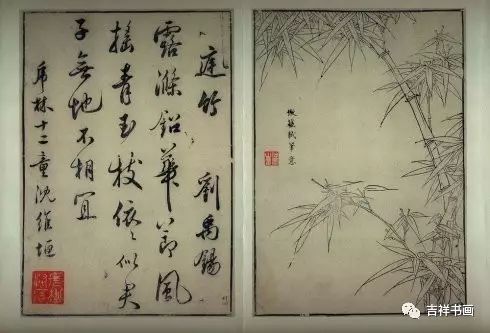 庭竹 劉禹錫
露滌鉛華節風
搖青玉枝依々似君
子無地不相宜
虎林十二童沈維垣
蘇軾筆意
吉祥书画